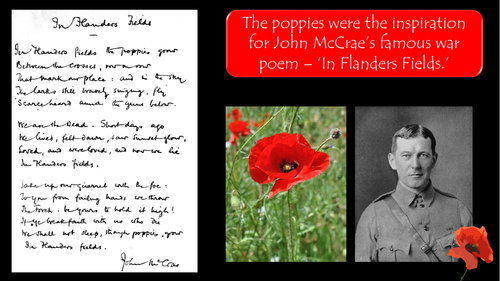 In Flanders Fields
In Flanders fields the poppies grow
Between the crosses, row on row
That mark our place: and in the sky
The larks still bravely singing, fly
Scarce heard amid the guns below.
We are the Dead. Short days ago
We lived, felt dawn, saw sunset glow,
Loved, and were loved, and now we lie
In Flanders fields.
Take up our quarrel with the foe:
To you from failing hands we throw
The torch: be yours to hold it high!
If ye break faith with us who die
We shall not sleep, though poppies grow
In Flanders fields.
John McCrae
The poppies were the inspiration
for John McCrae's famous war
poem – 'In Flanders Fields.'